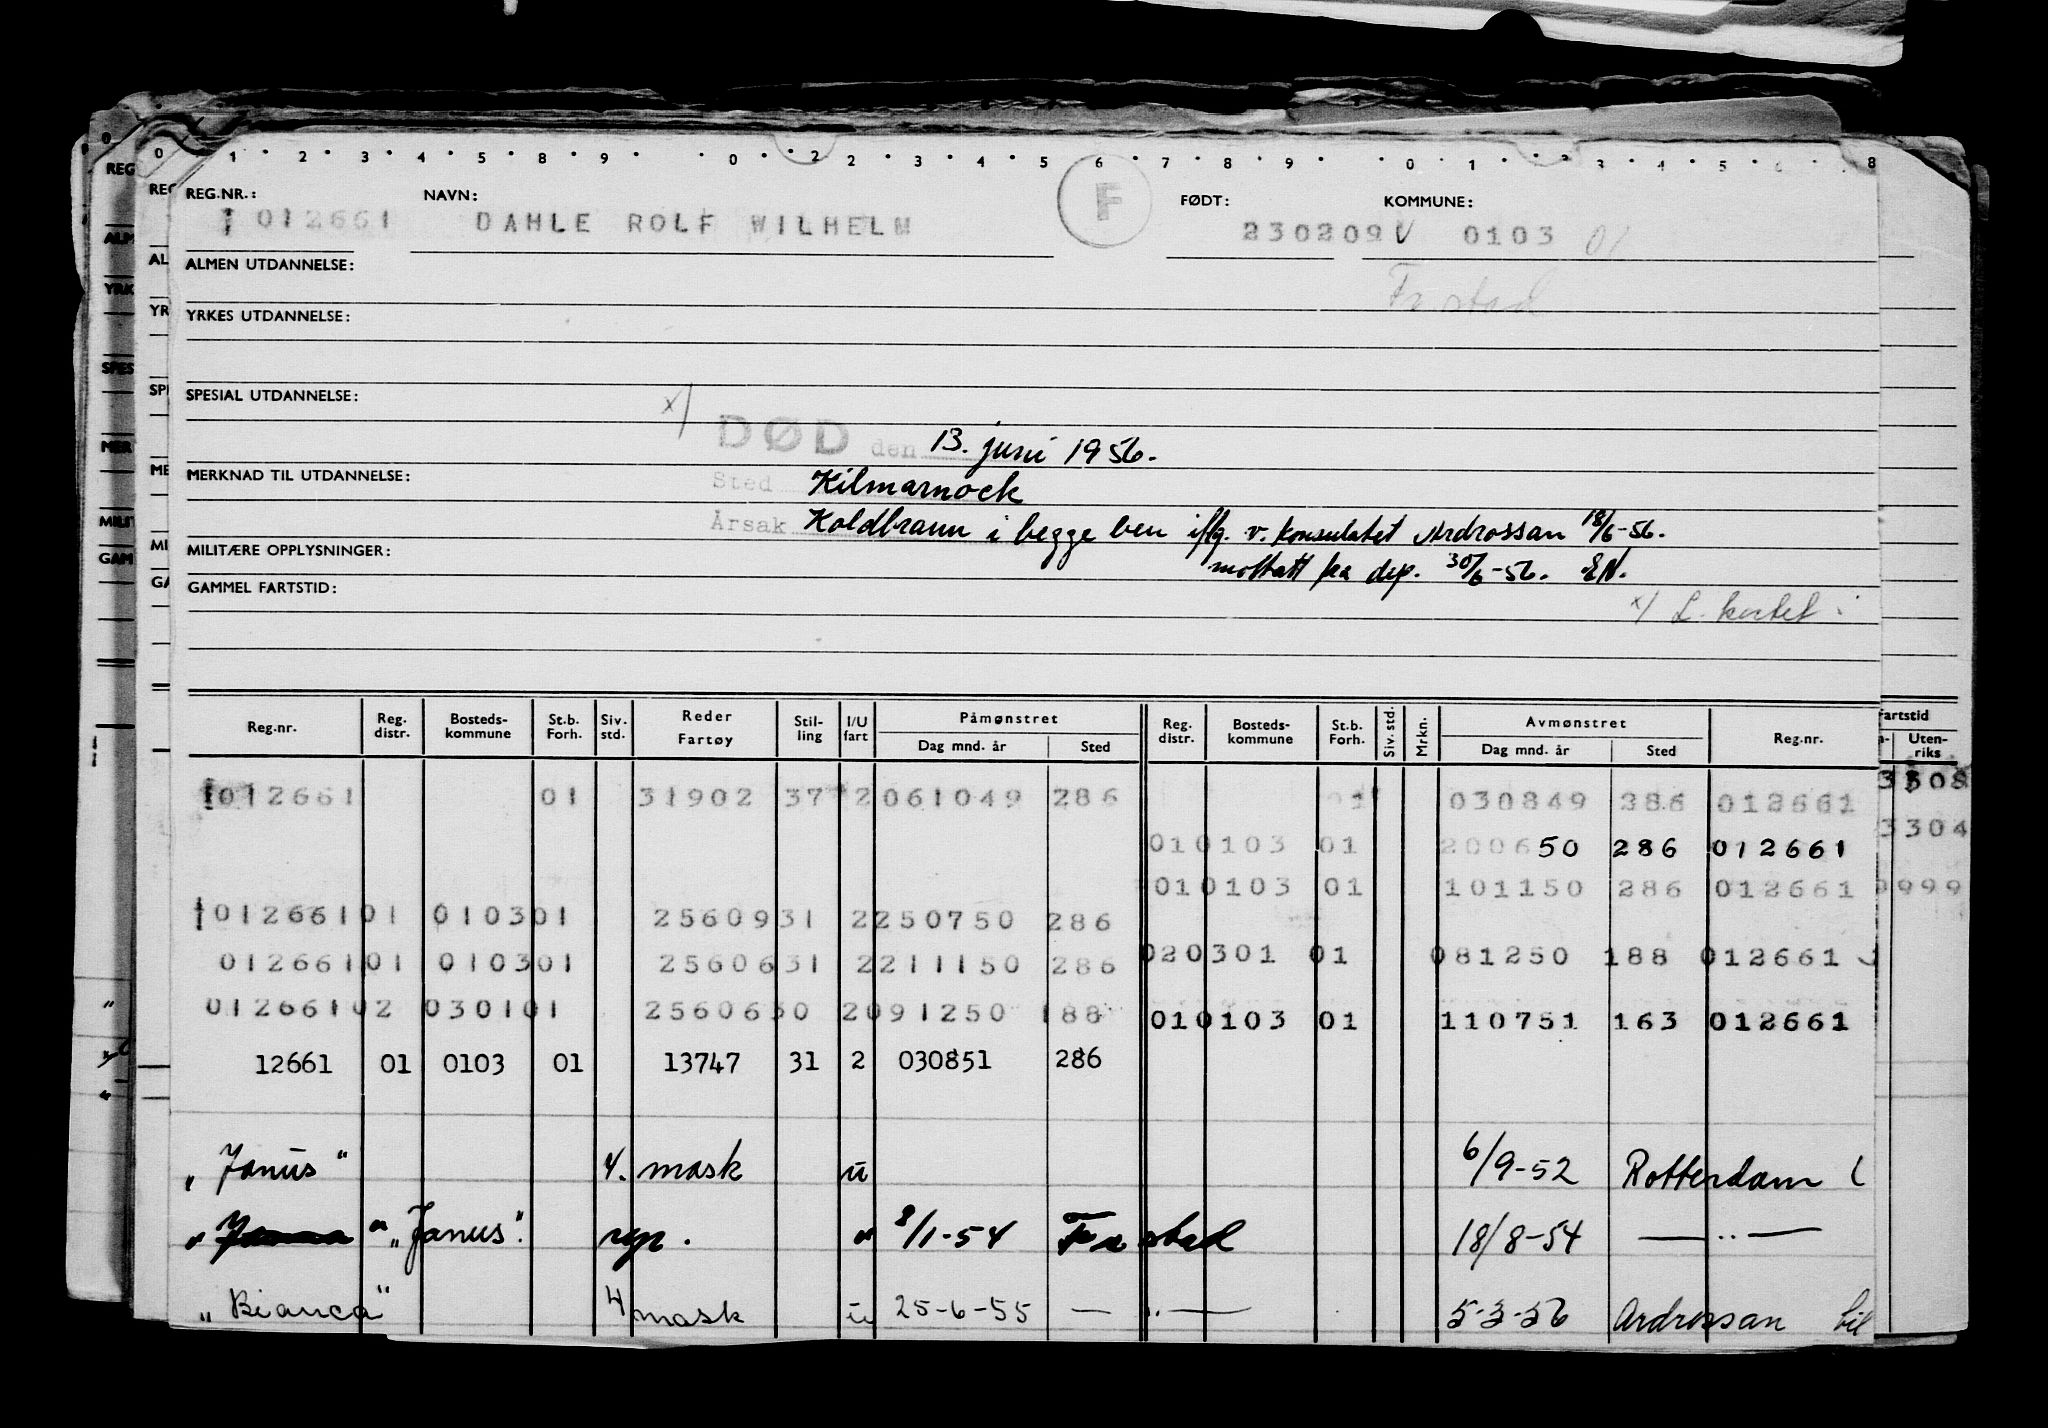 0 1 2 3 4 5 8 9 0 2 2 3 4 5 6 7 8 9 0 1 2 3 4 5 6 8
REG.NR.: NAVN: F FØDT: KOMMUNE:
1 012661 DAHLE ROLF WILHELM 230209 V 0103 01
ALMEN UTDANNELSE: Fr.stad
YRKES UTDANNELSE:
SPESIAL UTDANNELSE: x/
DØD den 13. juni 1956.
MERKNAD TIL UTDANNELSE: Sted Kilmarnock
Årsak Koldbrann i begge ben iflg. v. konsulatet Ardrossan 18/6-56.
MILITÆRE OPPLYSNINGER: mottatt fra dep. 30/6-56. EN.
GAMMEL FARTSTID: x/ L. kortet
Reg.nr. Reg. distr. Bosteds- kommune St.b. Forh. Siv. std. Reder Fartøy Stil- ling I/U fart Påmønstret Reg. distr. Bosteds- kommune St.b. Forh. Siv. std. Mrkn. Avmønstret Reg.nr. Fartstid
Dag mnd. år Sted Dag mnd. år Sted Uten- riks
1012661 01 31902 37 2 061049 286 01 030849 286 012661 3308
010103 01 200650 286 012661 3304
010103 01 101150 286 012661 9999
1 01266101 010301 2560931 2250750 286
01266101 010301 2560631 2211150 286 020301 01 081250 188 012661
01266102 030101 2560630 2091250 188 010103 01 110751 163 012661
12661 01 0103 01 13747 31 2 030851 286
"Janus" 4. mask u 6/9-52 Rotterdam (
" "Janus". rep. " 8/1-54 Fr stad 18/8-54 — .. —
"Bianca" 4 mask u 25-6-55 — .. — 5-3-56 Ardrossan bil